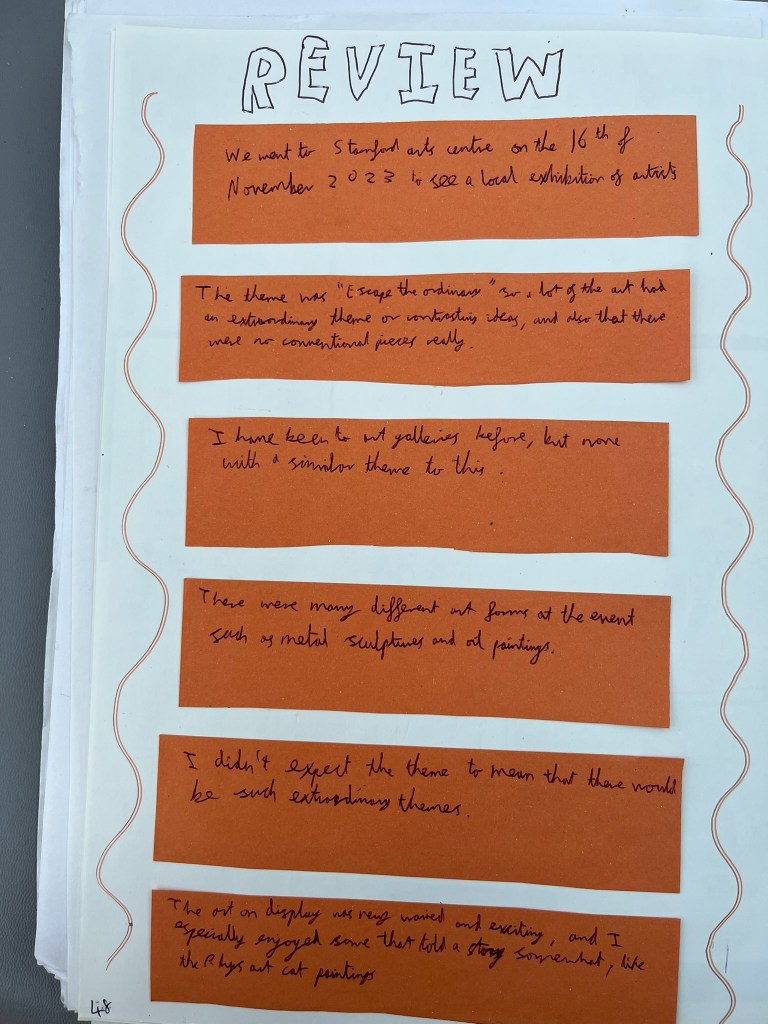 REVIEW
We went to Stamford arts centre on the 16th of
November 2023 to see a local exhibition of artists
The theme was "Escape the ordinary." So a lot of the art had
an extraordinary theme or contrasting ideas, and also that there
were no conventional pieces really.
I have been to art galleries before, but none
with a similar theme to this.
There were many different art forms at the event
such as metal sculptures and oil paintings.
I didn't expect the theme to mean that there would
be such extraordinary themes.
The art on display was very varied and exciting, and I
especially enjoyed some that told a story somewhat, like
the art cat paintings
48